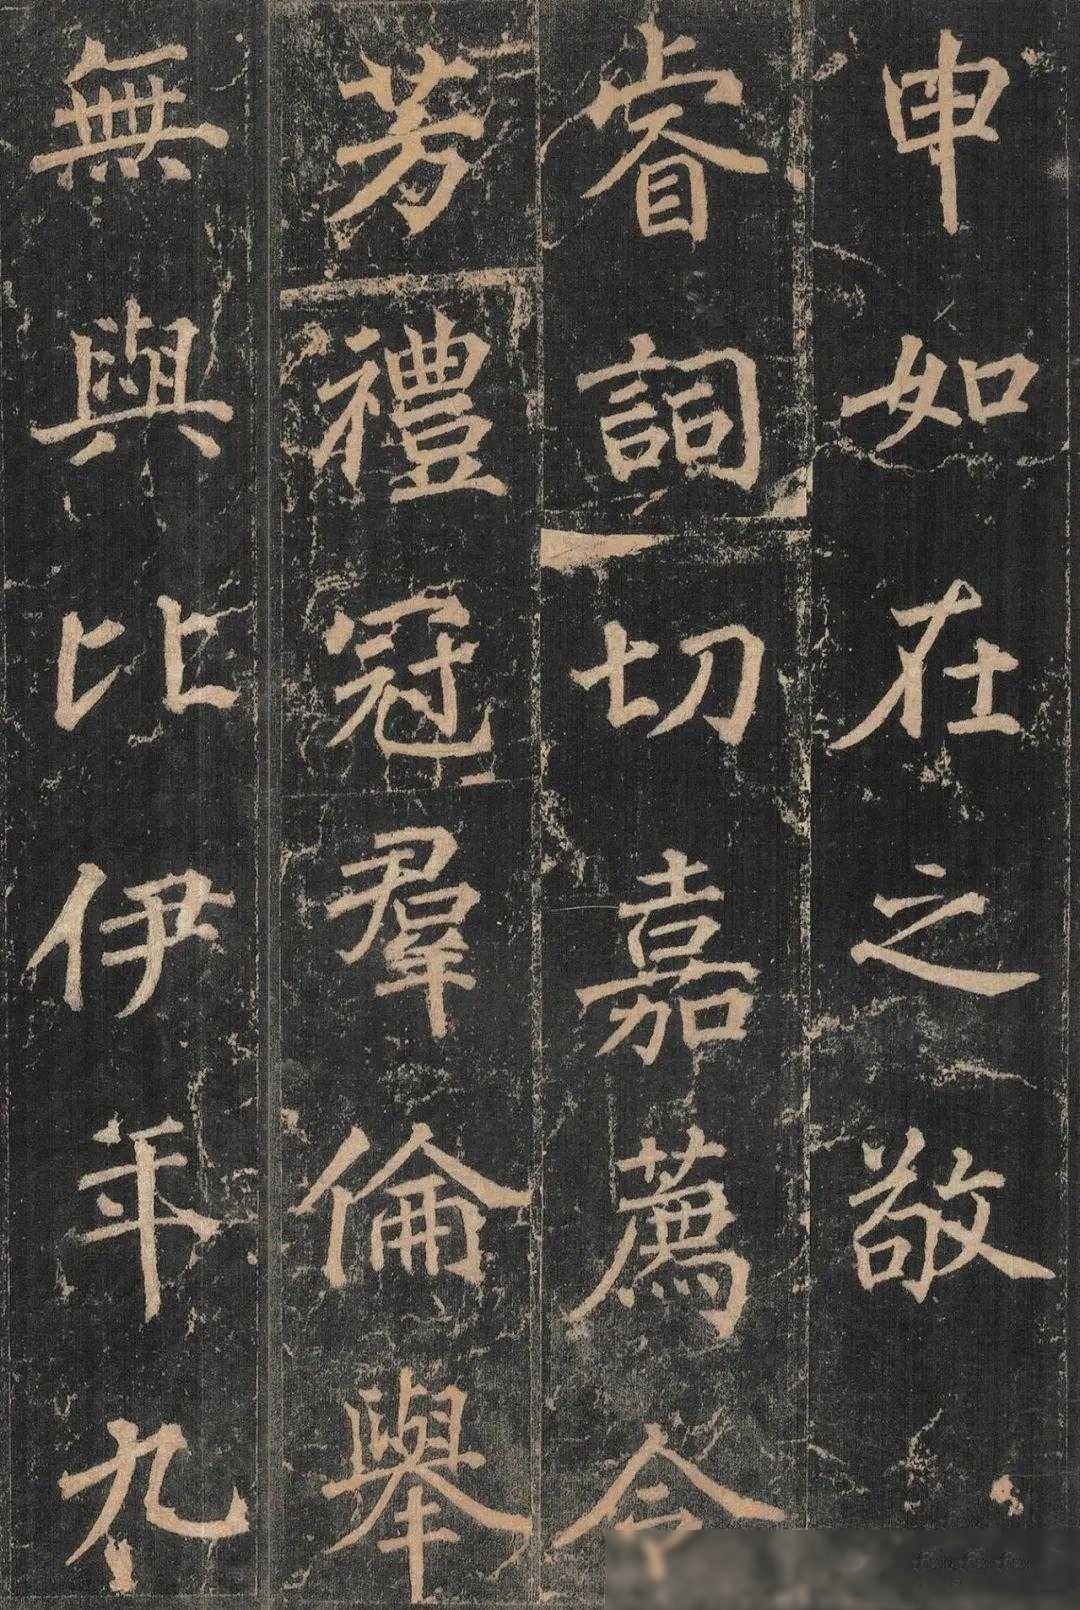 申如在之敬
睿詞切嘉薦令
芳禮冠羣倫舉
無與比伊年九